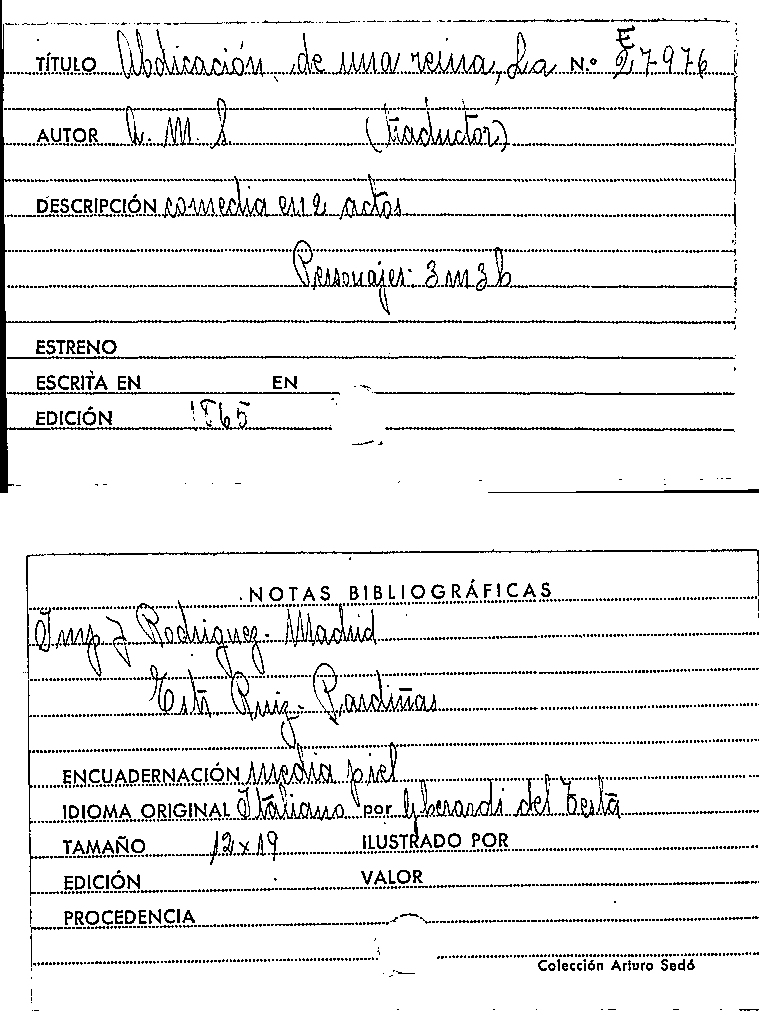 TÍTULO Abdicación, de una reina, La N.º E 27-976
AUTOR A. M. S. (traductor)
DESCRIPCIÓN comedia en 2 actos
Personajes: 3 m 3 h
ESTRENO
ESCRITA EN EN
EDICIÓN 1865
NOTAS BIBLIOGRÁFICAS
Imp J Rodriguez. Madrid
Estr Ruiz-
ENCUADERNACIÓN media piel
IDIOMA ORIGINAL Italiano por Gherardi del Testa
TAMAÑO 12 x 19 ILUSTRADO POR
EDICIÓN VALOR
PROCEDENCIA
Colección Arturo Sedó